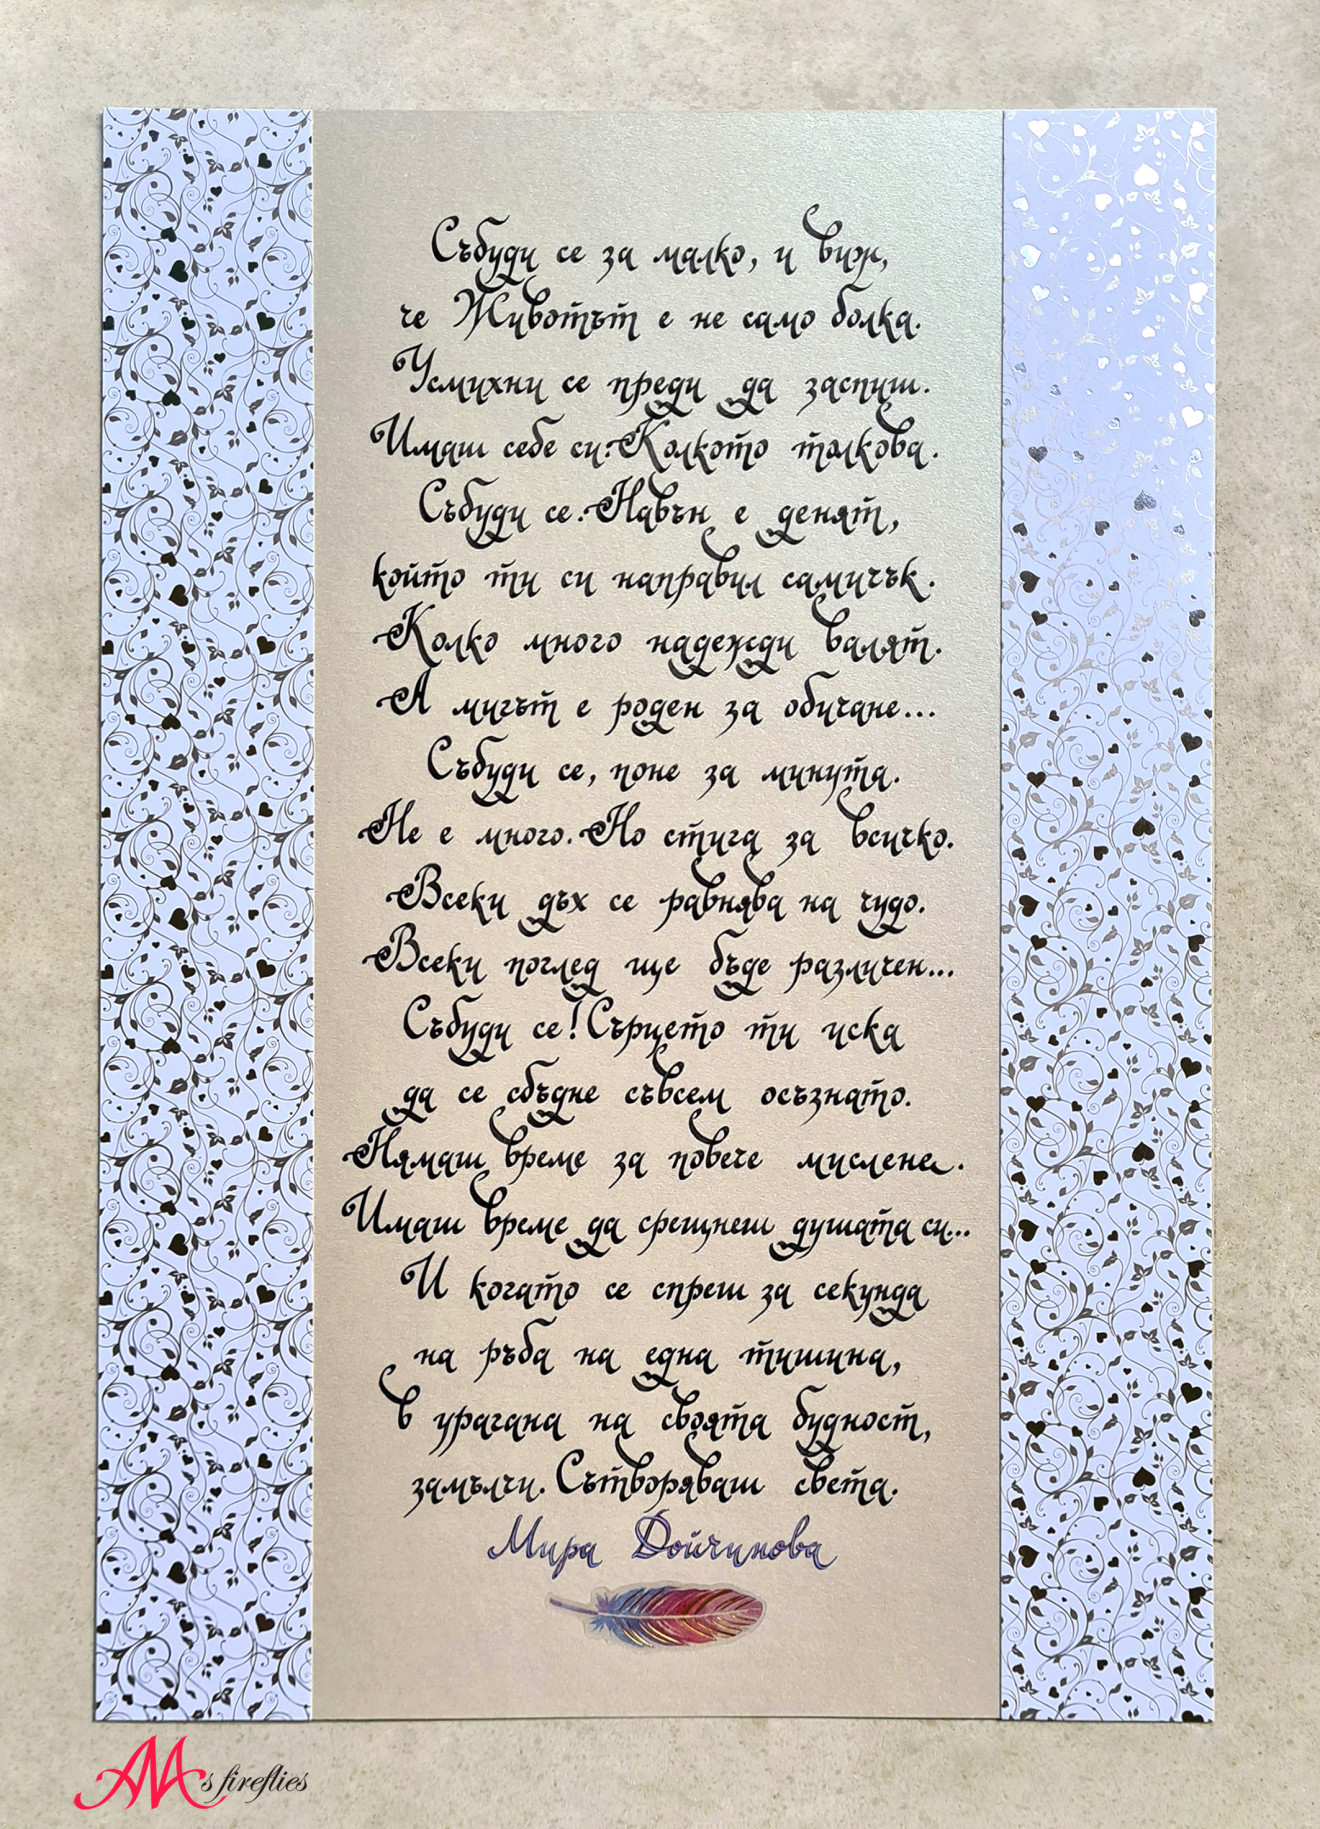 Събуди се за малко, и виж,
че Животът е не само болка.
Усмихни се преди да заспиш.
Имаш себе си. Колкото толкова.
Събуди се. Навън е денят,
който ти си направил самичък.
Колко много надежди валят.
А мигът е роден за обичане...
Събуди се, поне за минута.
Не е много. Но стига за всичко.
Всеки дъх се равнява на чудо.
Всеки поглед ще бъде различен...
Събуди се! Сърцето ти иска
да се сбъдне съвсем осъзнато.
Нямаш време за повече мислене.
Имаш време да срещнеш душата си...
И когато се спреш за секунда
на ръба на една тишина,
в урагана на своята будност,
замълчи. Сътворяваш света.
Мира Дойчинова
AM's fireflies